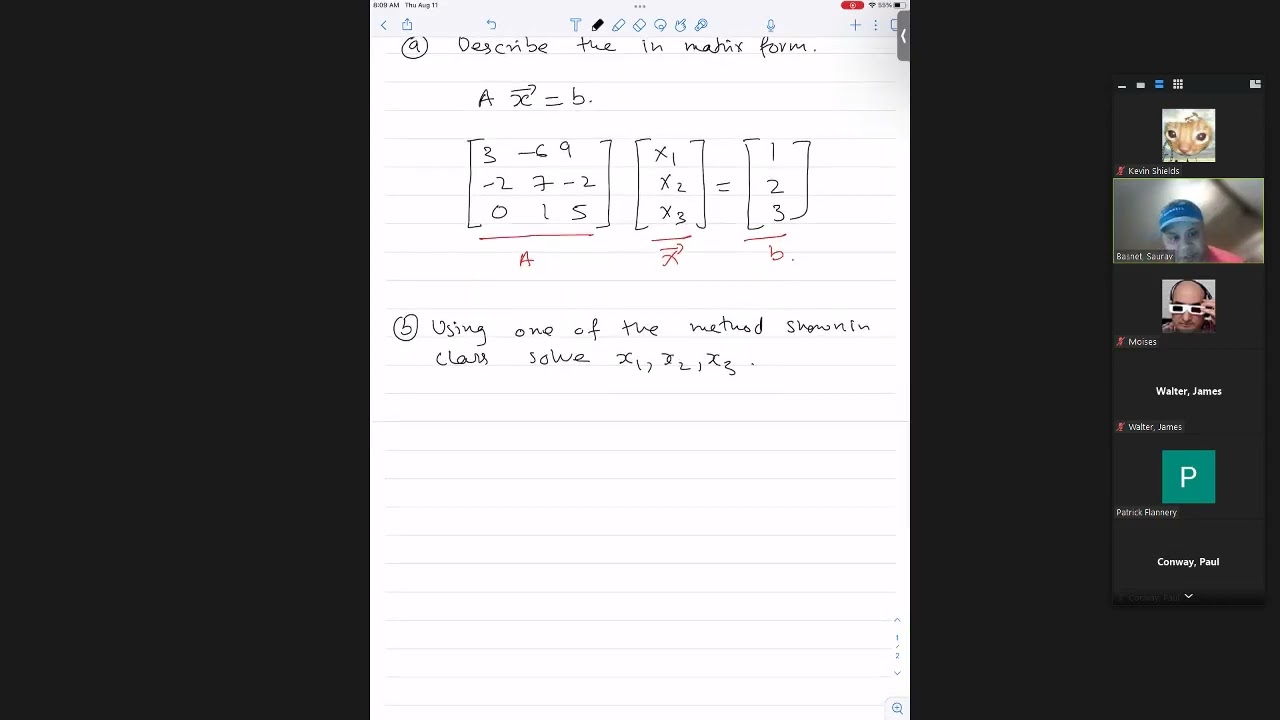 8:09 AM Thu Aug 11
55%
ⓐ Describe the in matrix form.
A x⃗ = b.
3 -6 9 x1 1
-2 7 -2 x2 = 2
0 1 5 x3 3
A x⃗ b.
ⓑ Using one of the method shown in
class solve x1, x2, x3.
1
2
Kevin Shields
Basnet, Saurav
Moises
Walter, James
Walter, James
P
Patrick Flannery
Conway, Paul
Conway, Paul